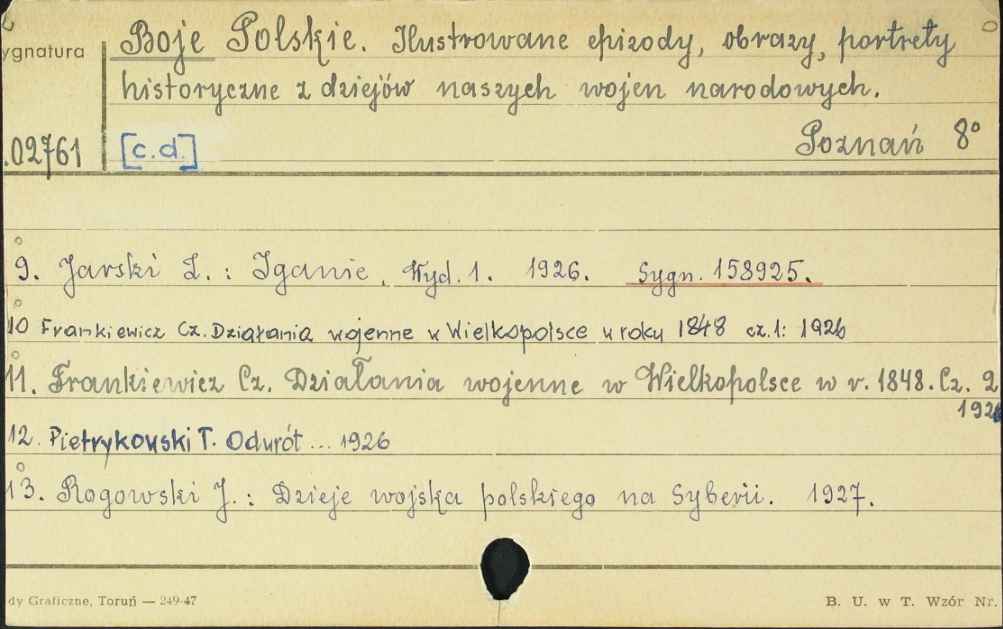 ygnatura
Boje Polskie. Ilustrowane epizody, obrazy, portrety
historyczne z dziejów naszych wojen narodowych.
.02761 [c.d.] Poznań 8°
9. Jarski L.: Iganie, Wyd. 1. 1926. Sygn. 158925.
10 Frankiewicz Cz. Działania wojenne w Wielkopolsce w roku 1848 cz.1: 1926
11. Frankiewicz Cz. Działania wojenne w Wielkopolsce w r. 1848. Cz. 2
1926
12. Pietrykowski T. Odwrót ... 1926
13. Rogowski J.: Dzieje wojska polskiego na Syberii. 1927.
dy Graficzne, Toruń — 249-47
B. U. w T. Wzór Nr.